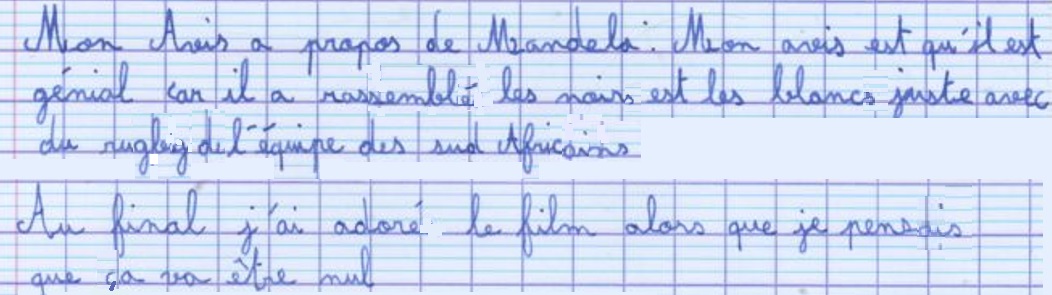 Mon Avis a propos de Mandela. Mon avis est qu'il est
génial car il a rassemblé les noirs est les blancs juste avec
du rugby de l'équipe des sud Africains
Au final j'ai adoré le film alors que je pensais
que ça va être nul